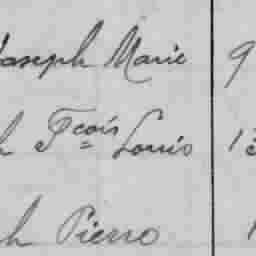 Joseph Marie 9
h Fçois Louis 13
ph Pierre 1